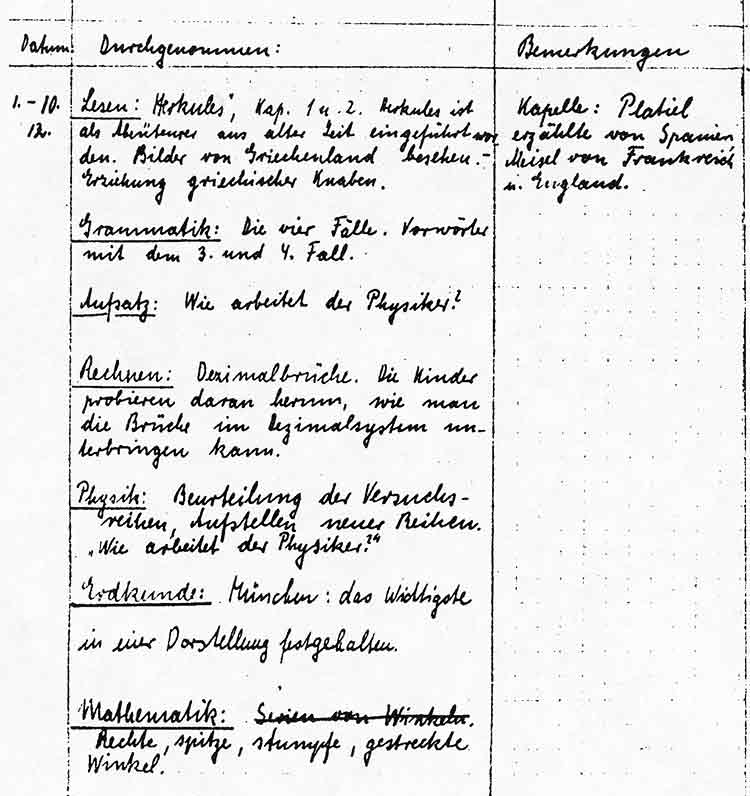 Datum
Durchgenommen:
Bemerkungen
1.-10.
12.
Lesen: Herkules", Kap. 1 u. 2. Herkules ist
als Abenteurer aus alter Zeit eingeführt wor
den. Bilder von Griechenland besehen.-
Erziehung griechischer Knaben.
Grammatik: Die vier Fälle. Vorwörter
mit dem 3. und 4. Fall.
Aufsatz: Wie arbeitet der Physiker?
Rechnen: Dezimalbrüche. Die Kinder
probieren daran herum, wie man
die Brüche im Dezimalsystem un-
terbringen kann.
Physik: Beurteilung der Versuchs-
reihen, Aufstellen neuer Reihen.
„Wie arbeitet der Physiker?"
Erdkunde: München: das Wichtigste
in einer Darstellung festgehalten.
Mathematik: Serien von Winkeln.
Rechte, spitze, stumpfe, gestreckte
Winkel.
Kapelle: Platiel
erzählte von Spanien,
Meisel von Frankreich
u. England.